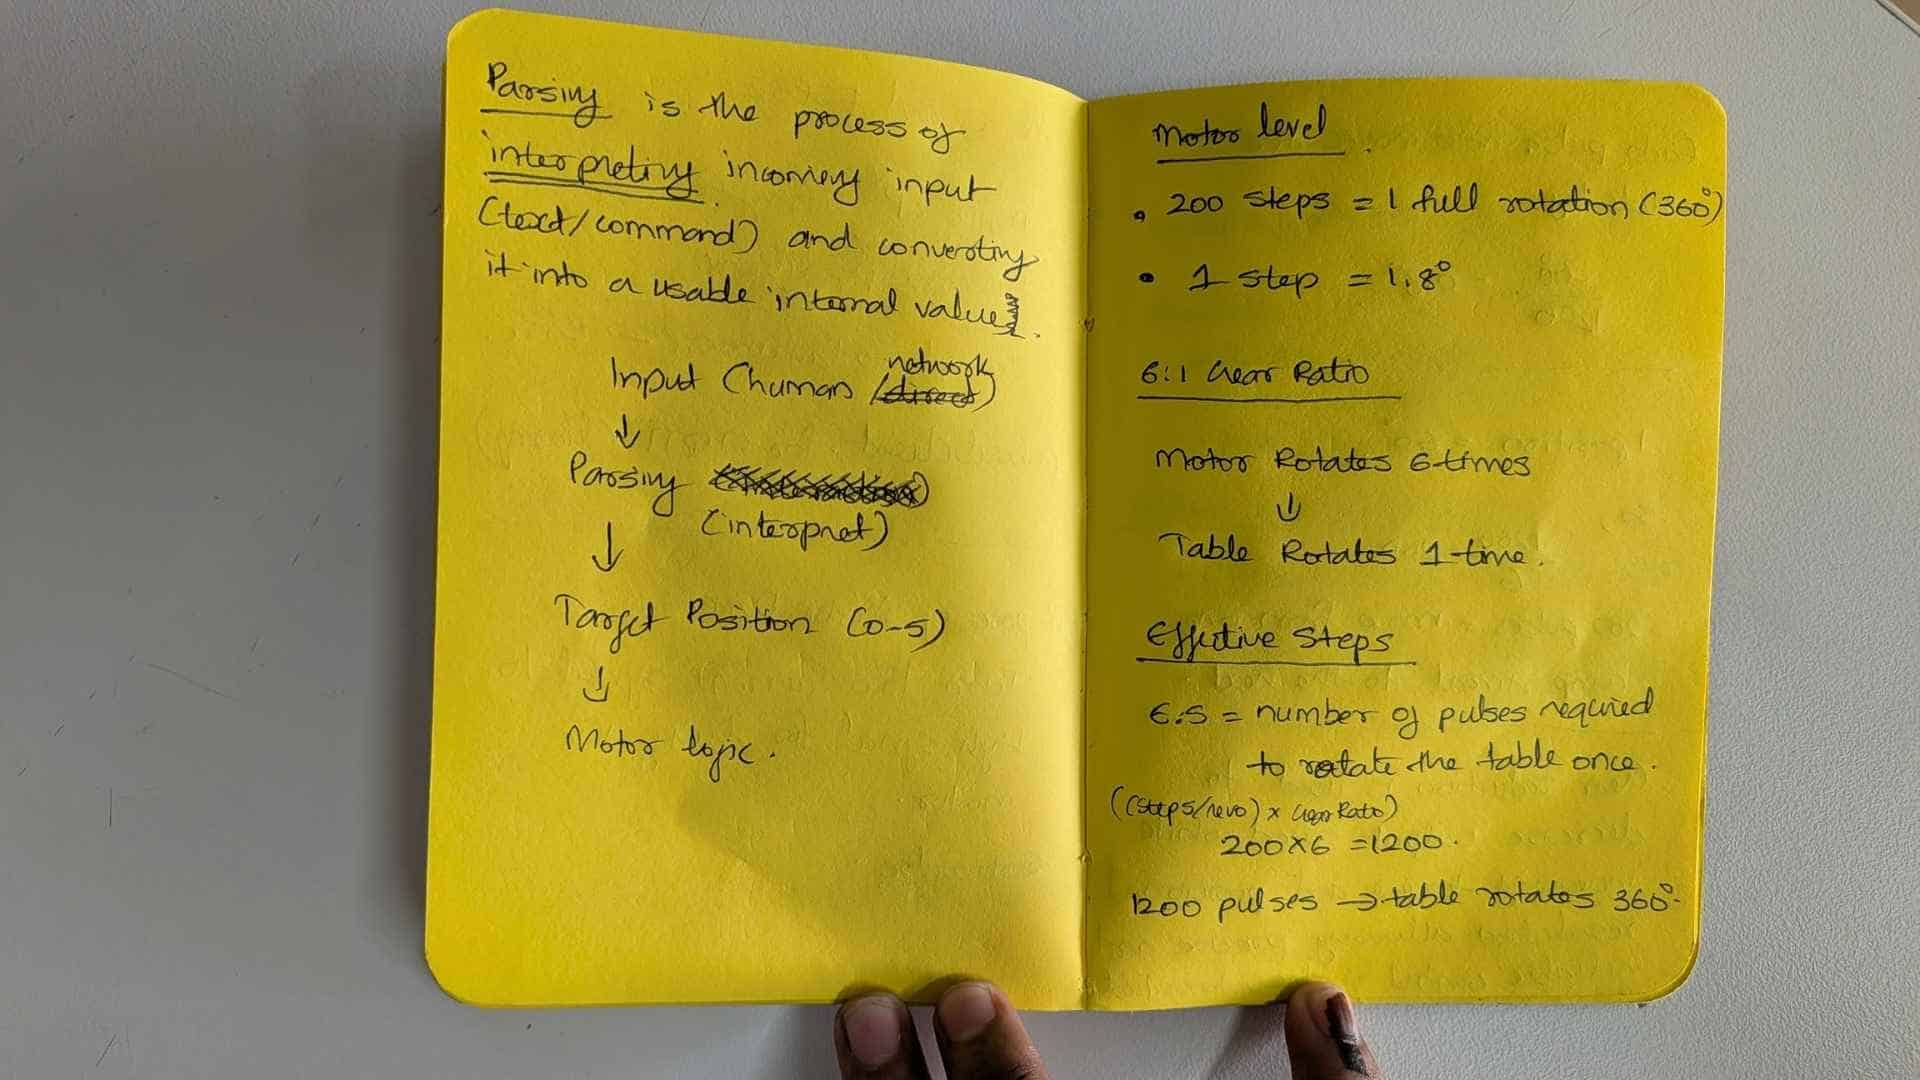 Parsing is the process of
interpreting incoming input
(text/command) and converting
it into a usable internal value.
Input (human / network
direct)
↓
Parsing
(interpret)
↓
Target Position (0-5)
↓
Motor logic.
Motor level
• 200 steps = 1 full rotation (360°)
• 1 step = 1.8°
6:1 Gear Ratio
Motor Rotates 6-times
↓
Table Rotates 1-time.
Effective Steps
E.S = number of pulses required
to rotate the table once.
((steps/revo) x Gear Ratio)
200x6 = 1200.
1200 pulses → table rotates 360°.